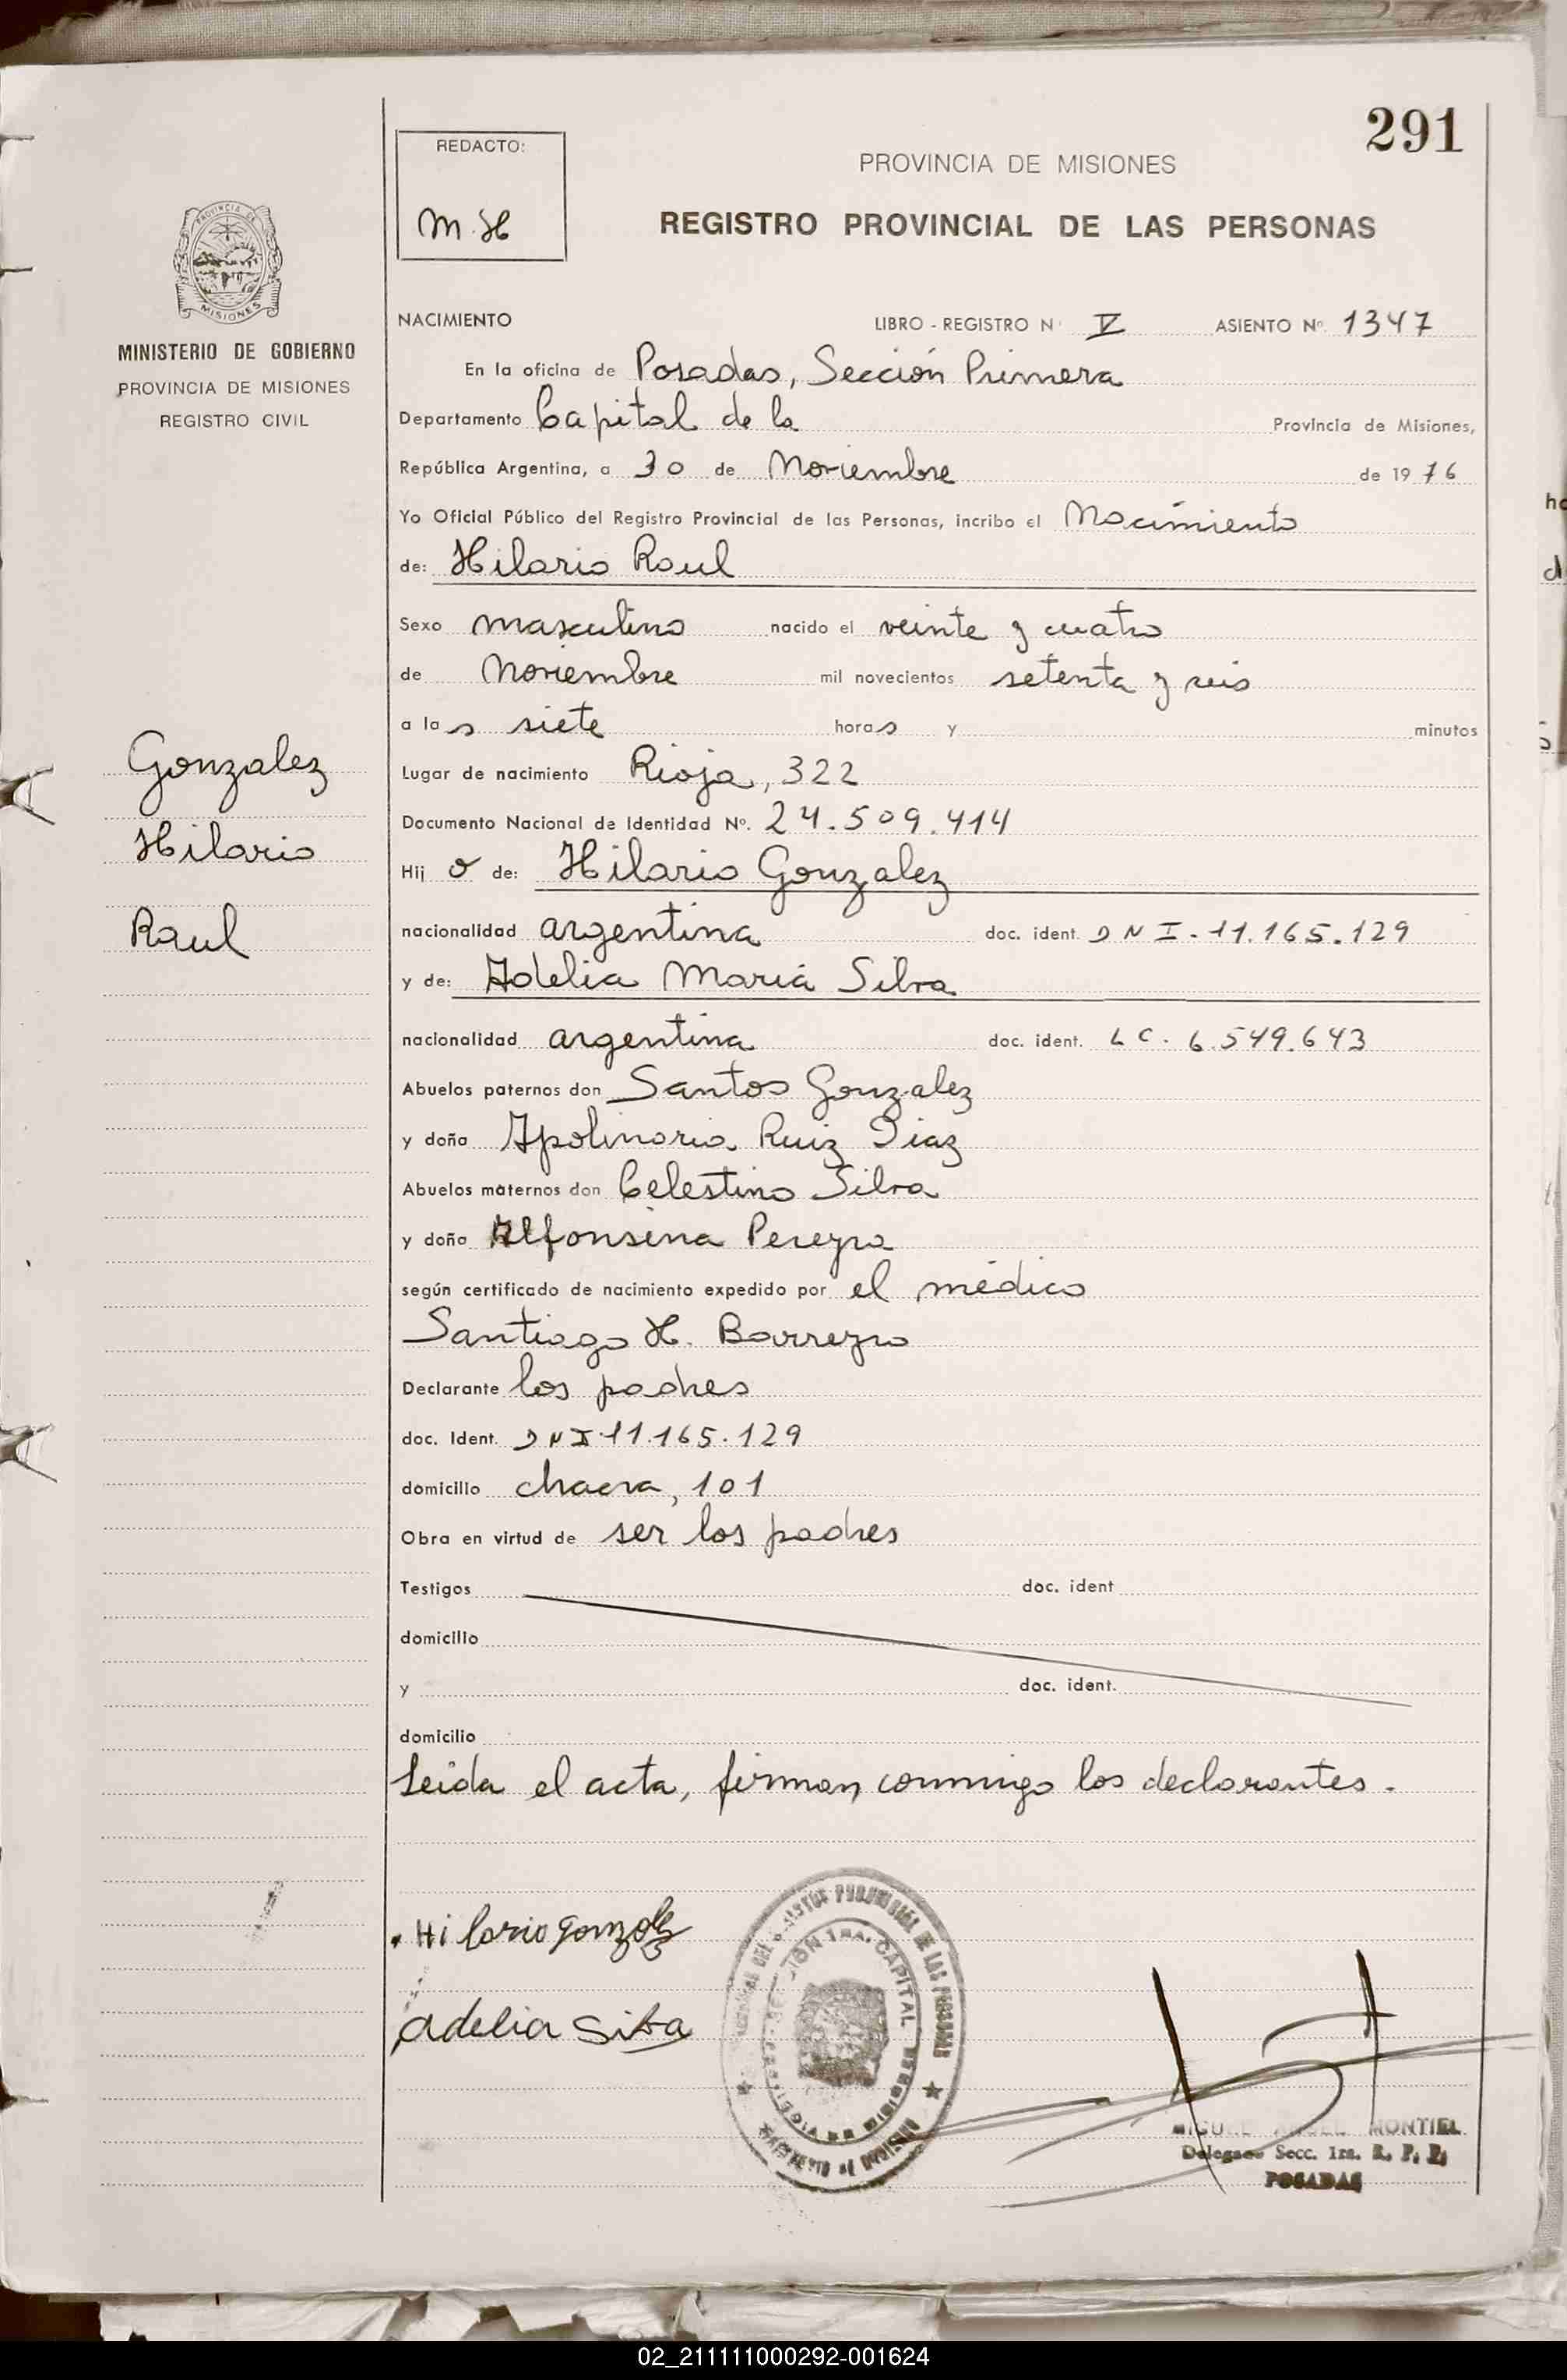 291
REDACTO:
M.H
PROVINCIA DE MISIONES
REGISTRO PROVINCIAL DE LAS PERSONAS
PROVINCIA DE
MISIONES
MINISTERIO DE GOBIERNO
PROVINCIA DE MISIONES
REGISTRO CIVIL
NACIMIENTO LIBRO - REGISTRO Nº V ASIENTO Nº 1347
En la oficina de Posadas, Sección Primera
Departamento Capital de la Provincia de Misiones,
República Argentina, a 30 de Noviembre de 1976
Yo Oficial Público del Registro Provincial de las Personas, incribo el Nacimiento
de: Hilario Raul
Sexo masculino nacido el veinte y cuatro
de Noviembre mil novecientos setenta y seis
a las siete horas y minutos
Gonzalez
Hilario
Raul
Lugar de nacimiento Rioja, 322
Documento Nacional de Identidad Nº. 24.509.414
Hijo de: Hilario Gonzalez
nacionalidad argentina doc. ident. DNI-11.165.129
y de: Adelia Maria Silva
nacionalidad argentina doc. ident. LC. 6.549.643
Abuelos paternos don Santos Gonzalez
y doña Apolinaria Ruiz Diaz
Abuelos maternos don Celestino Silva
y doña Alfonsina Pereyra
según certificado de nacimiento expedido por el médico
Santiago H. Barreyro
Declarante los padres
doc. Ident. DNI 11.165.129
domicilio chacra, 101
Obra en virtud de ser los padres
Testigos doc. ident
domicilio
y doc. ident.
domicilio
Leida el acta, firman conmigo los declarantes.
Hilario Gonzalez
Adelia Silva
SECCIÓN 1RA. CAPITAL
MIGUEL ANGEL MONTIEL
Delegado Secc. 1ra. R. P. P.
POSADAS
02_211111000292-001624